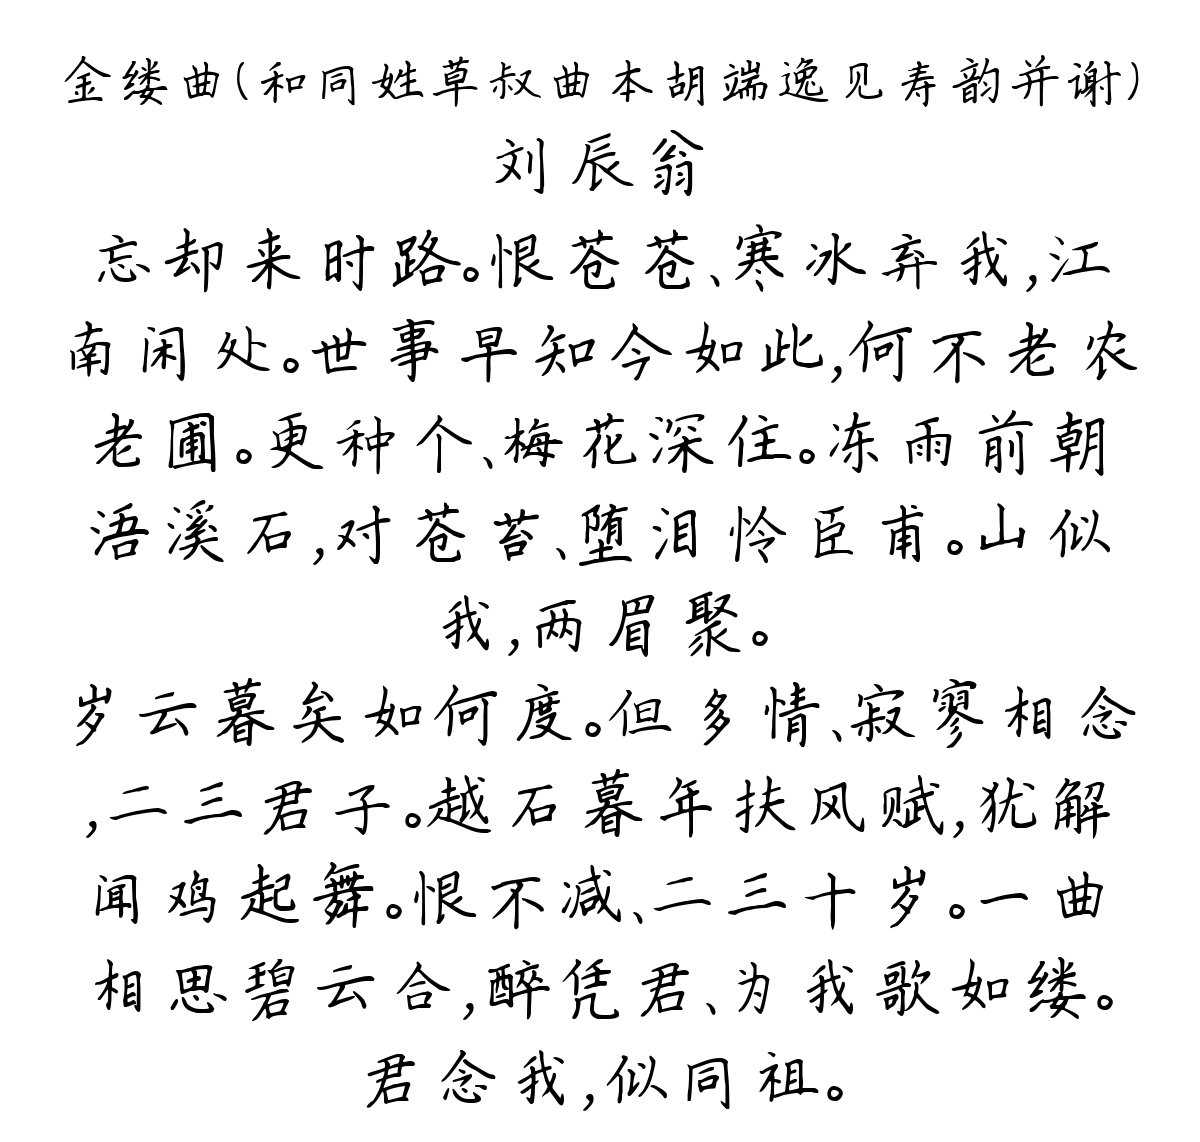 金缕曲(和同姓草叔曲本胡端逸见寿韵并谢)
刘辰翁
忘却来时路。恨苍苍、寒冰弃我,江
南闲处。世事早知今如此,何不老农
老圃。更种个、梅花深住。冻雨前朝
浯溪石,对苍苔、堕泪怜臣甫。山似
我,两眉聚。
岁云暮矣如何度。但多情、寂寥相念
,二三君子。越石暮年扶风赋,犹解
闻鸡起舞。恨不减、二三十岁。一曲
相思碧云合,醉凭君、为我歌如缕。
君念我,似同祖。